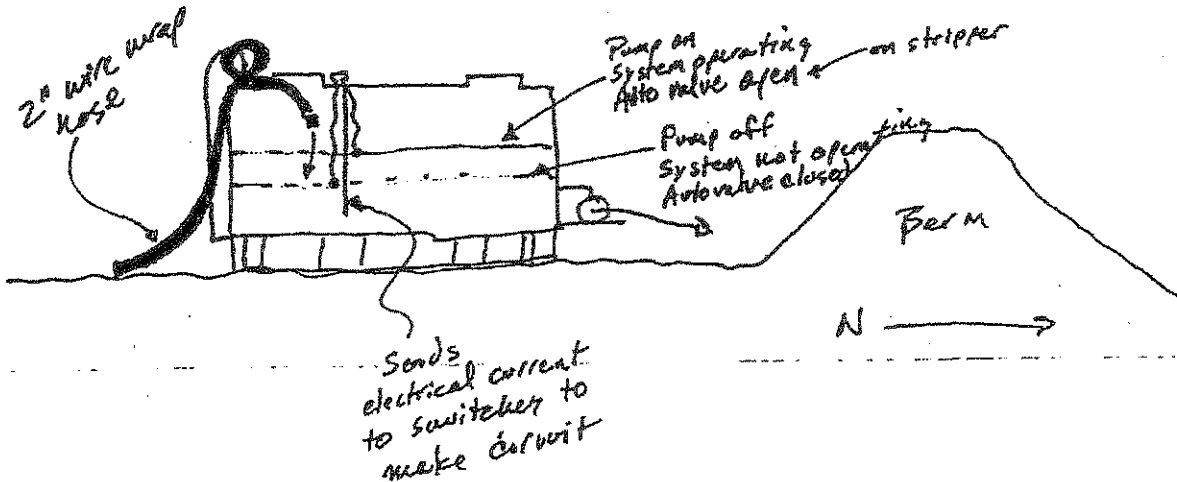 2" wire wrap
hose
Pump on
System operating
Auto valve open ← on stripper
Pump off
System not operating
Auto valve closed
Berm
N
Sends
electrical current
to switches to
make circuit